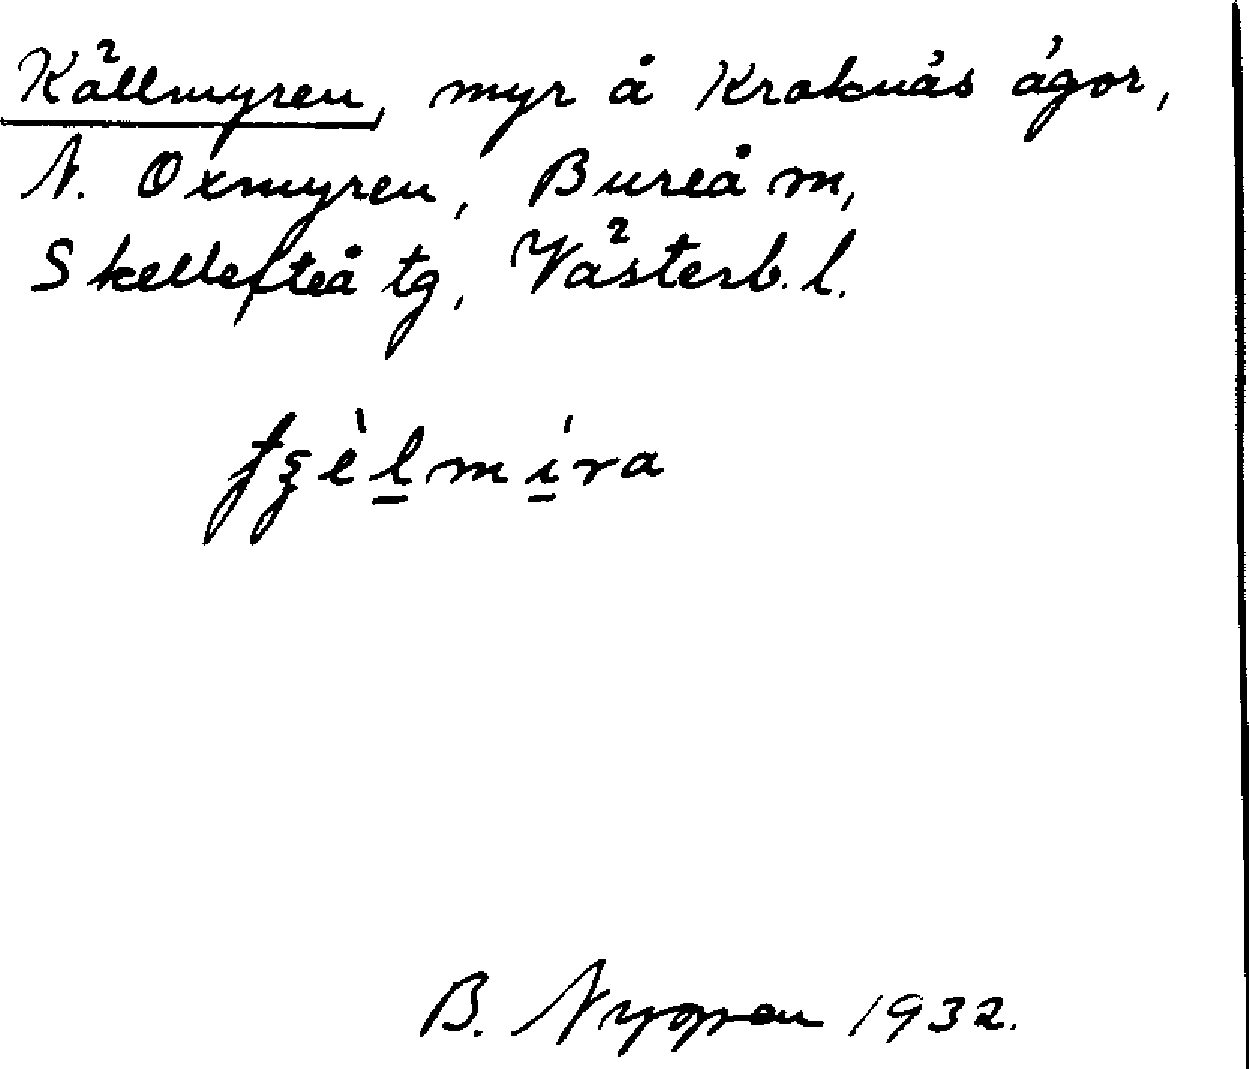 Källmyren, myr å Kroknäs ägor,
N. Oxmyren, Bureå m,
Skellefteå tg, Västerb. l.
B. Nygren 1932.